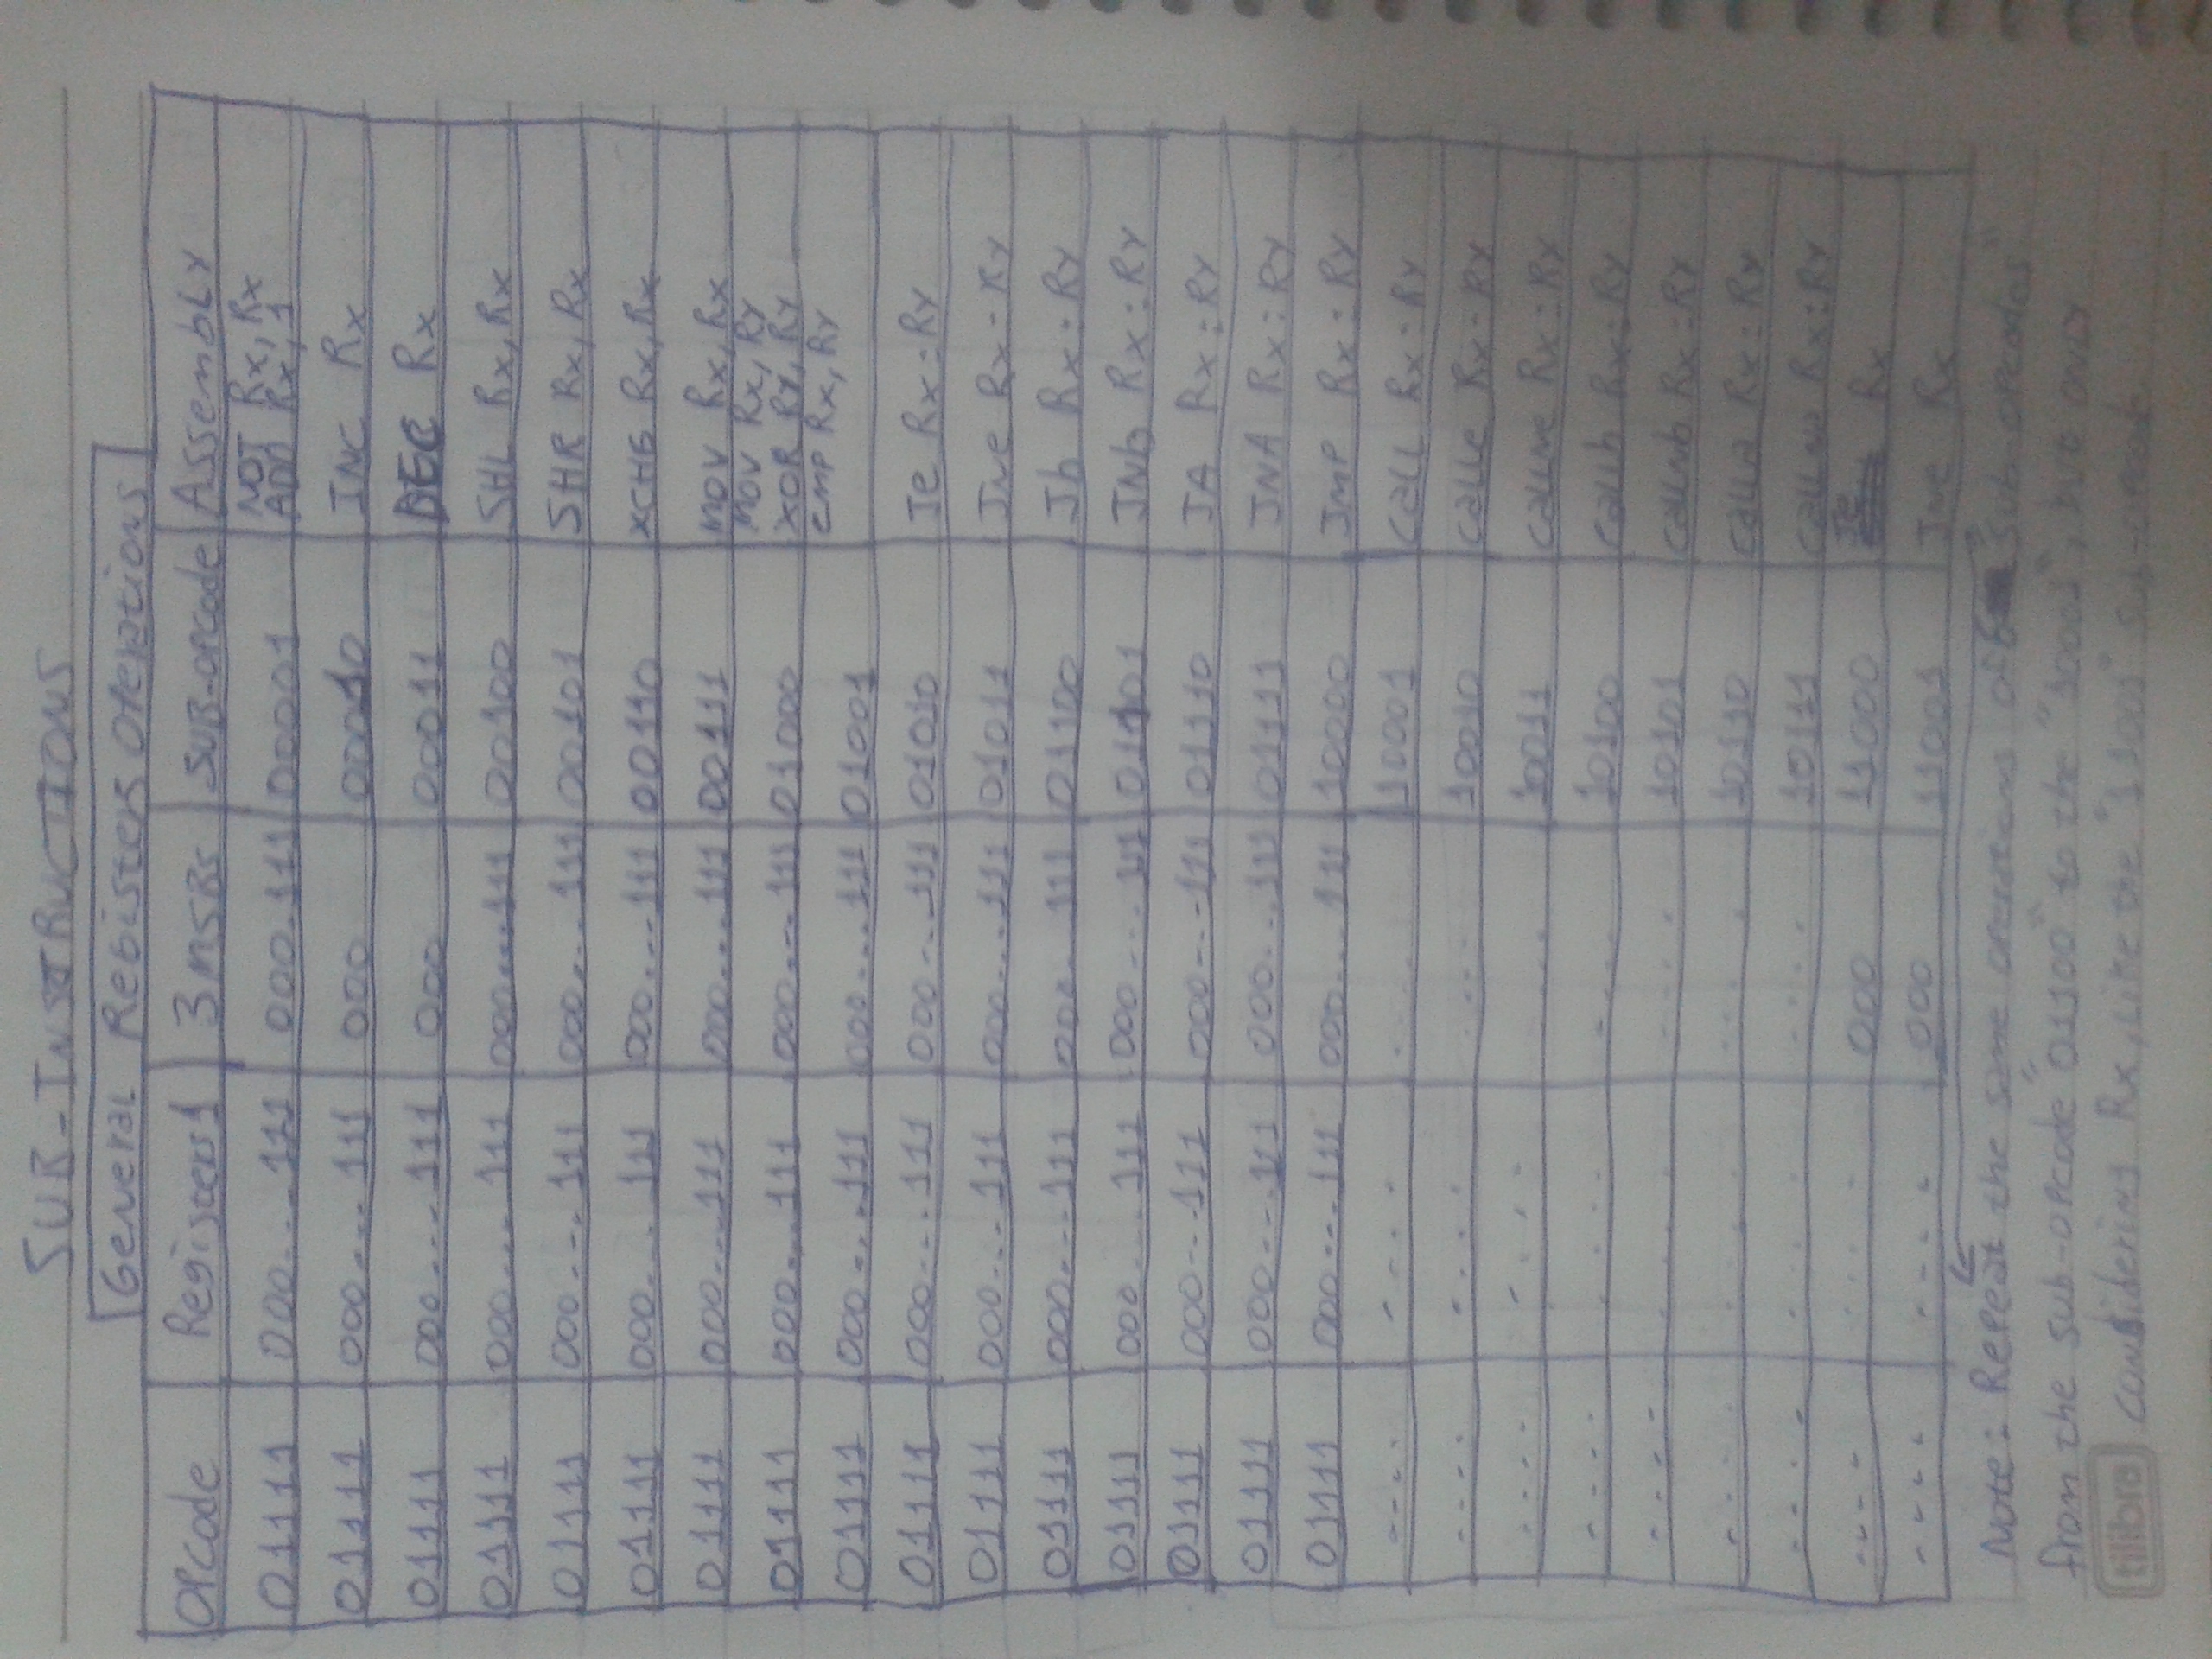 SUB-INSTRUCTIONS
General Registers Operations
Opcode Registers1 3 MSBs SUB-opcode Assembly
01111 000....111 000.111 00001 NOT Rx, Rx
ADD Rx, 1
01111 000....111 000 00010 INC Rx
01111 000....111 000 00011 DEC Rx
01111 000....111 000....111 00100 SHL Rx, Rx
01111 000....111 000....111 00101 SHR Rx, Rx
01111 000....111 000....111 00110 XCHG Rx, Rx
01111 000...111 000....111 00111 mov Rx, Rx
01111 000...111 000....111 01000 mov Rx, RY
XOR RY, RY
01111 000....111 000....111 01001 cmp Rx, RY
01111 000....111 000...111 01010 Je Rx:RY
01111 000...111 000....111 01011 Jne Rx:RY
01111 000....111 000....111 01100 Jb Rx:RY
01111 000....111 000....111 01101 JNb Rx:RY
01111 000...111 000...111 01110 JA Rx:RY
01111 000...111 000...111 01111 JNA Rx:RY
01111 000...111 000...111 10000 JMP Rx:RY
.... .... .... 10001 call Rx:RY
.... .... .... 10010 calle Rx:RY
.... .... .... 10011 callne Rx:RY
.... .... .... 10100 callb Rx:RY
.... .... .... 10101 callnb Rx:RY
.... .... .... 10110 calla Rx:RY
.... .... .... 10111 callna Rx:RY
.... .... 000 11000 Je Rx
.... .... 000 11001 Jne Rx
Note: Repeat the same operations of "sub-opcodes"
from the sub-opcode "01100" to the "10001", but only
considering Rx, like the "11001" sub-opcode.
tilibra